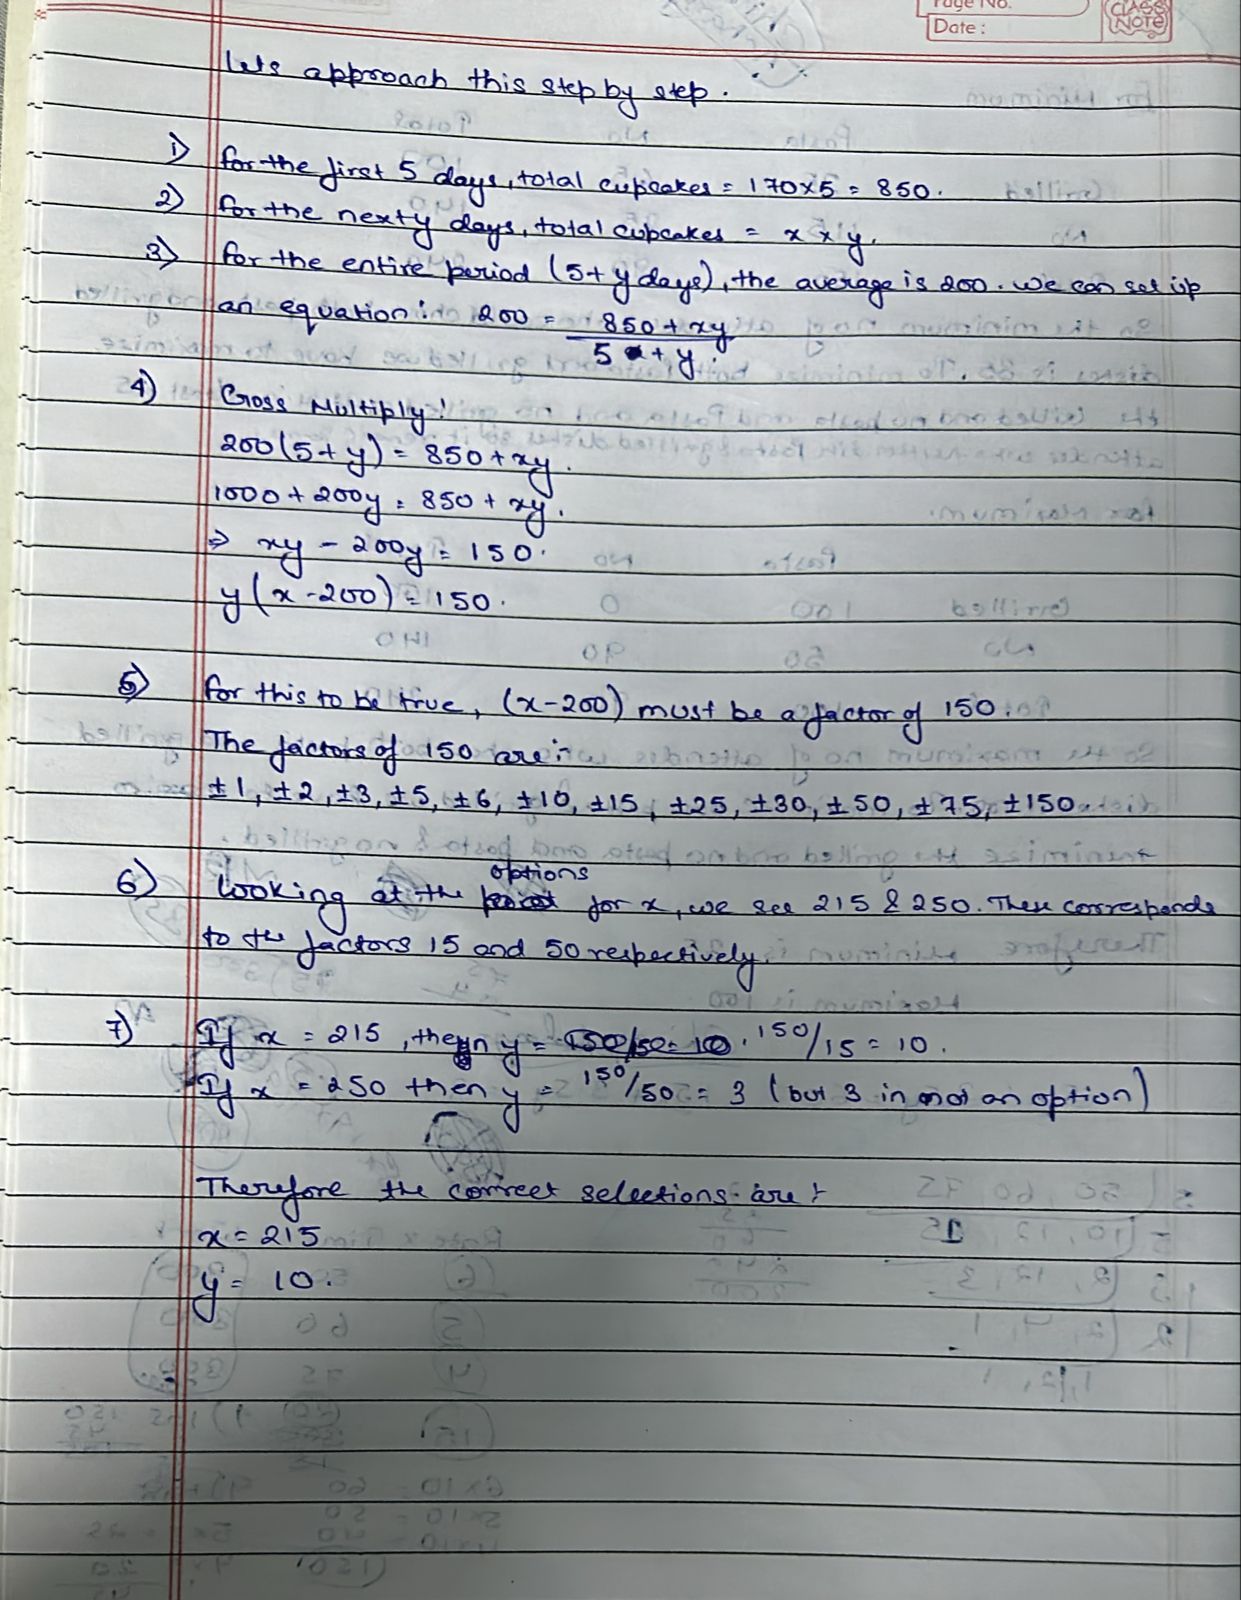 Page No.
Date:
CLASS NOTE
lets approach this step by step.
1) for the first 5 days, total cupcakes = 170x5 = 850.
2) for the next y days, total cupcakes = x x y.
3) for the entire period (5+ y days), the average is 200. We can set up
an equation: 200 = 850 + xy / 5 + y.
4) Cross Multiply:
200(5+y) = 850+xy.
1000 + 200y = 850 + xy.
⇒ xy - 200y = 150.
y(x-200) = 150.
5) for this to be true, (x-200) must be a factor of 150.
The factors of 150 are:
±1, ±2, ±3, ±5, ±6, ±10, ±15, ±25, ±30, ±50, ±75, ±150
6) looking at the options for x, we see 215 & 250. These corresponds
to the factors 15 and 50 respectively.
7) If x = 215, then y = 150/15 = 10.
If x = 250 then y = 150/50 = 3 (but 3 in not an option)
Therefore the correct selections are:
x = 215
y = 10.